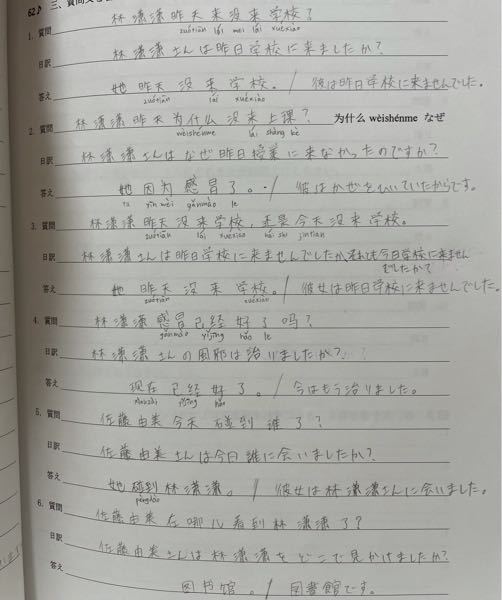 62♪ 三、質問文
1. 質問 林潇潇昨天来没来学校？
zuótiān lái méi lái xuéxiào
日訳 林潇潇さんは昨日学校に来ましたか？
答え 她昨天没来学校。/ 彼は昨日学校に来ませんでした。
zuótiān lái xuéxiào
2. 質問 林潇潇昨天为什么没来上课？ 为什么 wèishénme なぜ
wèishénme lái shàng kè
日訳 林潇潇さんはなぜ昨日授業に来なかったのですか？
答え 她因为感冒了。/ 彼はかぜをひいていたからです。
ta yīn wèi gǎnmào le
3. 質問 林潇潇昨天没来学校，还是今天没来学校。
zuótiān lái xuéxiào hái shi jīntian
日訳 林潇潇さんは昨日学校に来ませんでしたか、それとも今日学校に来ません
でしたか？
答え 她昨天没来学校。/ 彼女は昨日学校に来ませんでした。
zuótiān xuéxiào
4. 質問 林潇潇感冒已经好了吗？
gǎnmào yǐjīng hǎo le
日訳 林潇潇さんの風邪は治りましたか？
答え 现在已经好了。/ 今はもう治りました。
yǐjīng hǎo
5. 質問 佐藤由美今天碰到谁了？
日訳 佐藤由美さんは今日誰に会いましたか？
答え 她碰到林潇潇。/ 彼女は林潇潇さんに会いました。
pèngdào
6. 質問 佐藤由美在哪儿看到林潇潇了？
日訳 佐藤由美さんは林潇潇をどこで見かけましたか？
答え 图书馆。/ 図書館です。